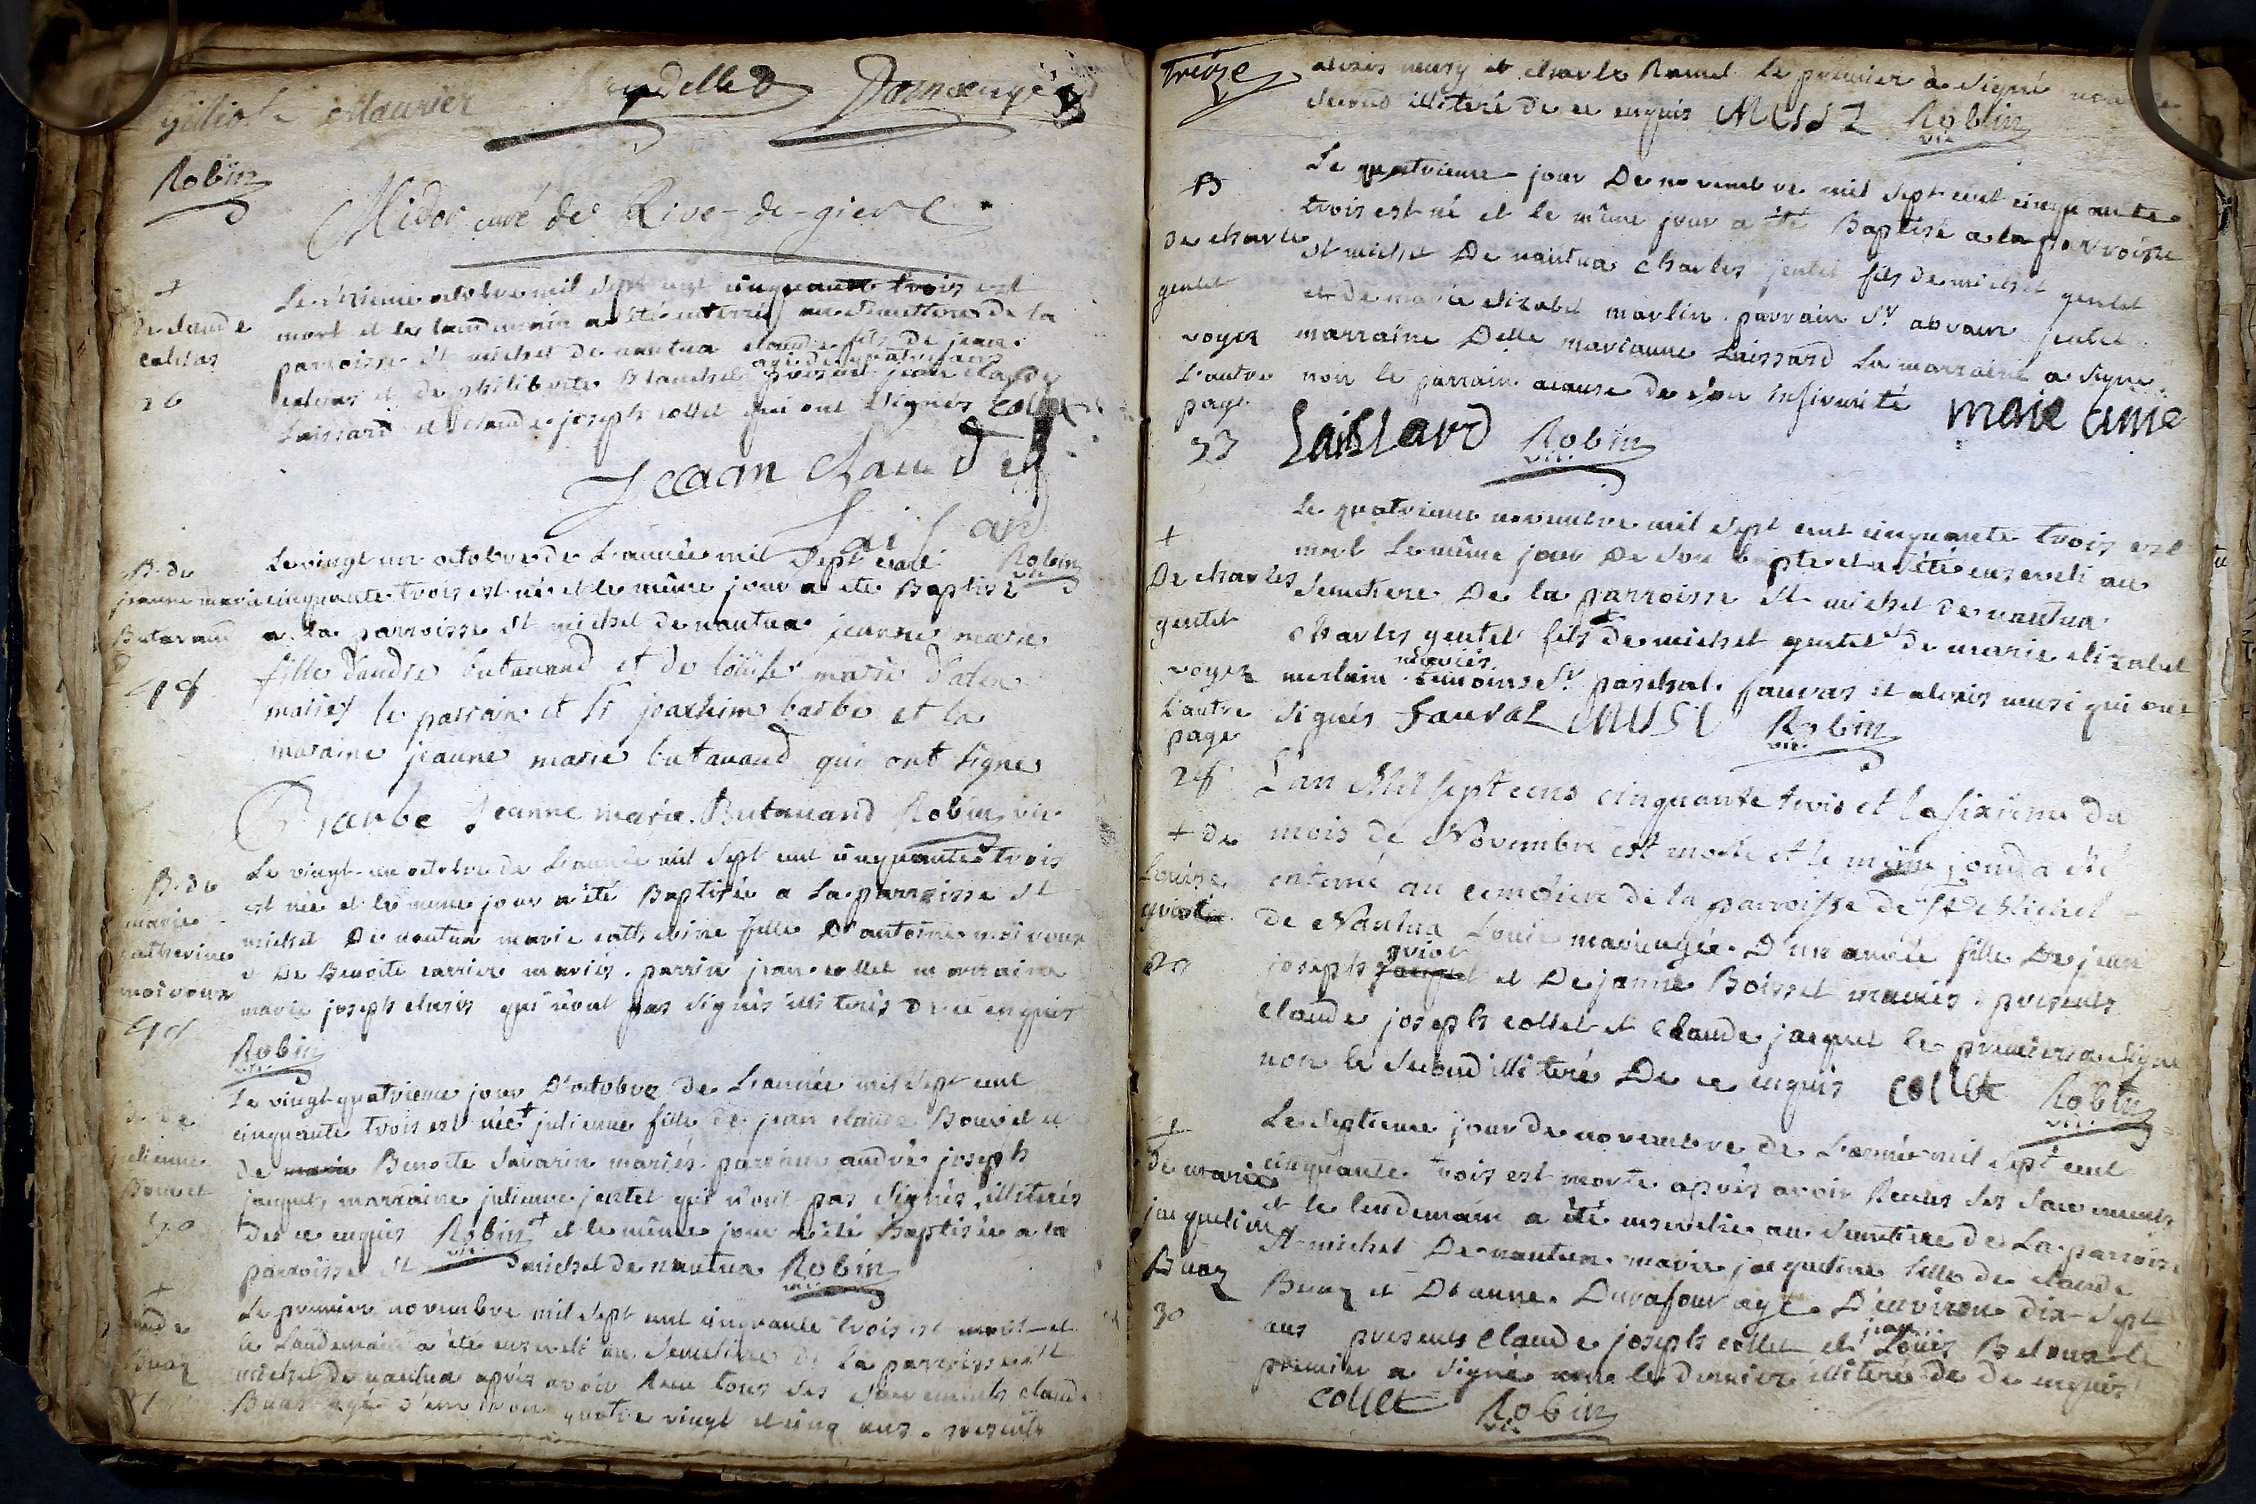 Maurier
Robin
Midor curé de Rive-de-gier
+
de claude
Le octobre mil sept cent cinquante trois est
mort et le landemain a été enterré au semettere de la
parroisse st michel de nantua claude fils de jean
agé de quatre ans
et de philiberte Blanchet present jean claude
Laissard et claude joseph collet qui ont signés collet
Jeaan Claude
Lai
Robin
vic
B. de
jeanne marie
Butavand
48
Le vingt un octobre de L'année mil sept cent
cinquante trois est né et le même jour a ete Baptisé
a la parroisse st michel de nantua jeanne marie
fille d'andre butavand et de loüise marie
mariés le parrain et sr joachim barbe et la
maraine jeanne marie butavand qui ont signe
Barbe Jeanne marie Butavand Robin vic
B. de
marie
catherine
moivoux
49
Le vingt-un octobre de L'année mil sept cent cinquante trois
est née et le meme jour a été Baptisée a La parroisse st
michel De nantua marie catherine fille D'antoine moivoux
et De Benoite carrier mariés. parrin jean collet marraine
marie joseph qui n'ont pas signés illiterés de ce enquis
Robin
vic
B. de
julienne
Bouvet
50
Le vingt-quatrieme jour D'octobre de L'année mil sept cent
cinquante trois est née + julienne fille de jean claude Bouvet et
de Benoite Savarin mariés. parrain andré joseph
jaquet, marraine julienne jentet qui n'ont pas signés, illiterés
de ce enquis Robin + et le même jour a été Baptisée a la
vic
parroisse st michel de nantua Robin
vic
+
Buaz
Le premier novembre mil sept cent cinquante trois est mort et
le Landemain a été enseveli au semetiere de La parroisse st
michel de nantua après avoir Receu tous ses sacrements claude
Buaz agé d'environ quatre vingt et cinq ans. presents
Treize
alexis musy et charle Ramel Le premier a signé non le
second illiteré de ce enquis MUSI Robin
vic
B
de charle
gentet
voyez
L'autre
page
53
Le quatrieme jour De novembre mil sept cent cinquante
trois est né et le même jour a été Baptisé a la parroisse
st michel De nantua charles jentet fils de michel gentet
et de marie elizabet marlin. parrain sr. jentet
marraine Delle marianne Laissard La marraine a signé
non le parrain acause de son infirmité marie anne
Laissard Robin
vic
+
De charles
gentet
voyez
L'autre
page
28
Le quatrieme novembre mil sept cent cinquante trois est
mort Le même jour De son bapte et a été enseveli au
semetiere De la parroisse st michel de nantua
charles gentet fils de michel gentet et de marie elizabet
mariés
merlain temoins sr. paschal fauvas et alexis musi qui ont
signés fauvas MUSI Robin
vic
+ de
Louise
griot
29
L'an Mil sept cens cinquante trois et le sixieme du
mois de Novembre est morte et le même jour a été
enterré au cemetiere de la parroisse de st Michel
de Nantua Louise marie agée D'un année fille De jean
griot
joseph et De janne Boisset mariés: presents
claude joseph collet et claude jaquet le premier a signe
non le second illiteré De ce enquis collet Robin
vic
+
de marie
jaqueline
Buaz
30
Le septieme jour de novembre de L'année mil sept cent
cinquante trois est morte après avoir Receus ses sacrements
et le lendemain a été ensevelie au semetiere de La parroisse
st michel De nantua marie jacqueline fille de claude
Buaz et D'anne Durafour agée D'environ dix-sept
jean
ans presents claude joseph collet et Loüis le
premier a signé non le dernier illiteré de De enquis
collet Robin
vic